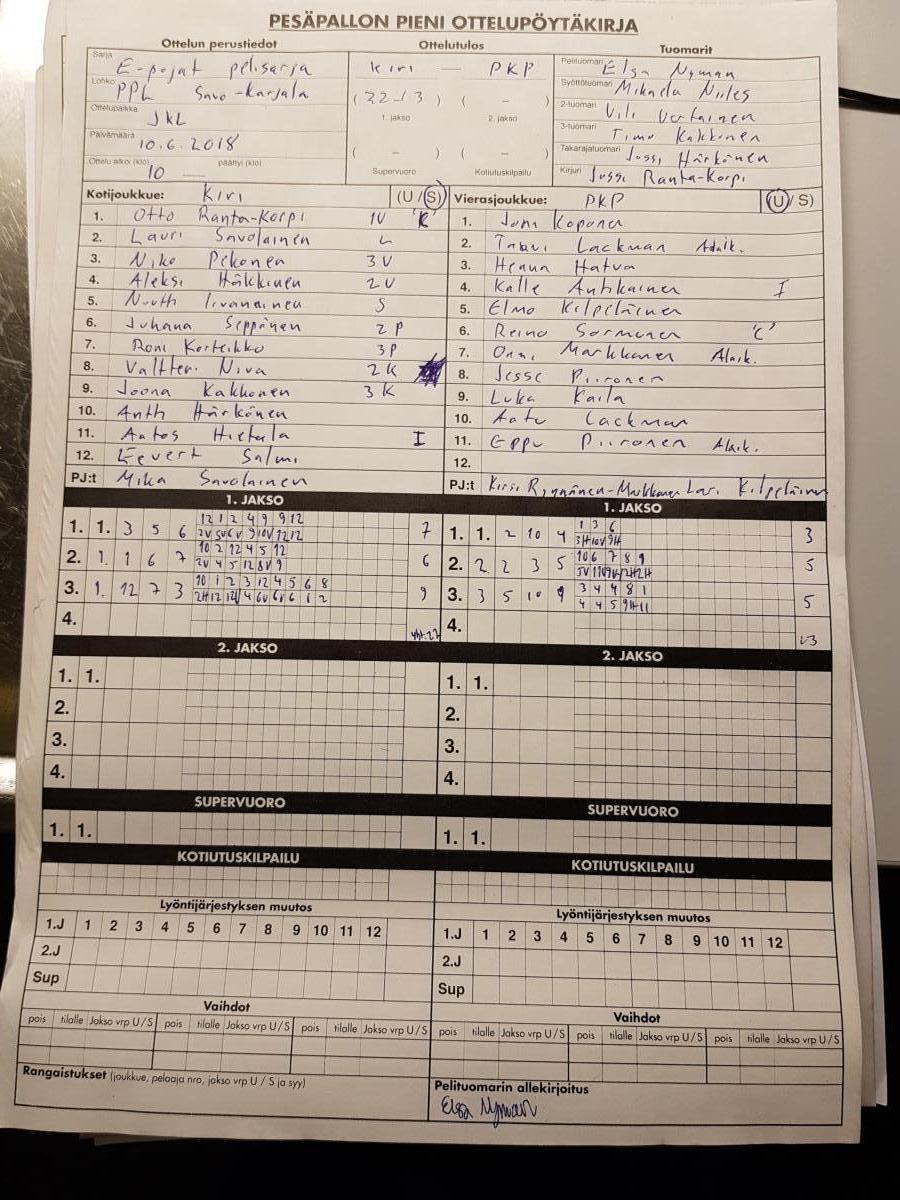 PESÄPALLON PIENI OTTELUPÖYTÄKIRJA
Ottelun perustiedot
Sarja E-pojat pelisarja
Lohko PPL Savo-Karjala
Ottelupaikka JKL
Päivämäärä 10.6.2018
Ottelu alkoi (klo) 10 päättyi (klo)
Ottelutulos
Kiri — PKP
(22-13) ( - )
1. jakso 2. jakso
( - ) ( - )
Supervuoro Kotiutuskilpailu
Tuomarit
Pelituomari Elsa Nyman
Syöttötuomari Mikaela
2-tuomari
3-tuomari Timo Kakkonen
Takarajatuomari Jussi Härkönen
Kirjuri Jussi Ranta-Korpi
Kotijoukkue: Kiri (U/S)
1. Otto Ranta-Korpi 1V "K"
2. Lauri Savolainen L
3. Niko Pekonen 3V
4. Aleksi Häkkinen 2V
5. S
6. Juhana Seppänen 2P
7. Roni Korteikko 3P
8. Valtteri Niva 2K
9. Joona Kakkonen 3K
10. Härkönen
11. Aatos Hietala I
12. Eevert Salmi
PJ:t Mika Savolainen
Vierasjoukkue: PKP (U/S)
1. Joni Koponen
2. Lackman
3. Henna Hatva
4. Kalle Antikainen I
5. Elmo Kilpeläinen
6. Reino Sormunen "C"
7. Onni Markkanen Alaik.
8. Jesse Piironen
9. Luka Kaila
10. Aatu Lackman
11. Eppu Piironen Alaik.
12.
PJ:t Kirsi Ryynänen-Markkanen Kilpeläinen
1. JAKSO
1. 1. 3 5 6 12 1 2 4 9 9 9 12 7
2. 1. 1 6 7 10 2 12 4 5 12 6
3. 1. 12 7 3 10 1 2 3 12 4 5 6 8 9
4. yht. 22
1. JAKSO
1. 1. 2 10 4 1 3 6 3
2. 2 2 3 5 10 6 7 8 9 5
3. 3 5 10 9 3 4 4 8 1 5
4. 13
2. JAKSO
1. 1.
2.
3.
4.
2. JAKSO
1. 1.
2.
3.
4.
SUPERVUORO
1. 1.
SUPERVUORO
1. 1.
KOTIUTUSKILPAILU
KOTIUTUSKILPAILU
Lyöntijärjestyksen muutos
1.J 1 2 3 4 5 6 7 8 9 10 11 12
2.J
Sup
Lyöntijärjestyksen muutos
1.J 1 2 3 4 5 6 7 8 9 10 11 12
2.J
Sup
Vaihdot
pois tilalle Jakso vrp U/S pois tilalle Jakso vrp U/S pois tilalle Jakso vrp U/S
Vaihdot
pois tilalle Jakso vrp U/S pois tilalle Jakso vrp U/S pois tilalle Jakso vrp U/S
Rangaistukset (joukkue, pelaaja nro, jakso vrp U / S ja syy)
Pelituomarin allekirjoitus
Elsa Nyman